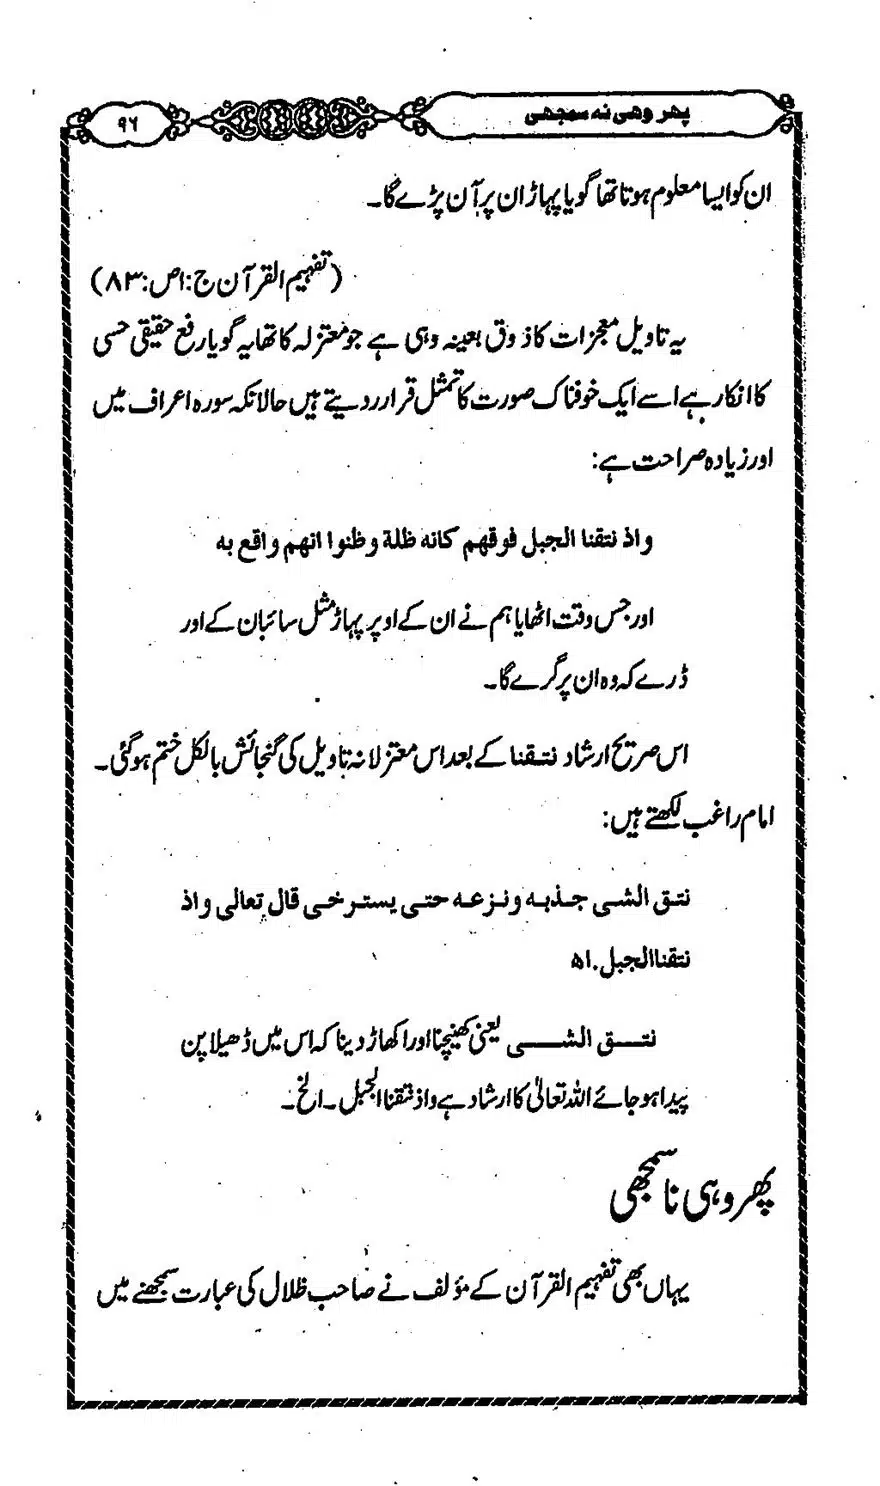 پھر وہی نہ سمجھی
۹۶
ان کو ایسا معلوم ہوتا تھا گویا پہاڑ ان پر آن پڑے گا۔
(تفہیم القرآن ج:۱ص:۸۳)
یہ تاویل معجزات کا ذوق بعینہ وہی ہے جو معتزلہ کا تھا یہ گویا رفع حقیقی حسی
کا انکار ہے اسے ایک خوفناک صورت کا تمثل قرار دیتے ہیں حالانکہ سورہ اعراف میں
اور زیادہ صراحت ہے:
واذ نتقنا الجبل فوقهم كانه ظلة وظنوا انهم واقع به
اور جس وقت اٹھایا ہم نے ان کے اوپر پہاڑ مثل سائبان کے اور
ڈرے کہ وہ ان پر گرے گا۔
اس صریح ارشاد نتقنا کے بعد اس معتزلانہ تاویل کی گنجائش بالکل ختم ہو گئی۔
امام راغب لکھتے ہیں:
نتق الشی جذبه ونزعه حتی یسترخی قال تعالی واذ
نتقنا الجبل.اھ
نتق الشی یعنی کھینچنا اور اکھاڑ دینا کہ اس میں ڈھیلا پن
پیدا ہو جائے اللہ تعالیٰ کا ارشاد ہے واذ نتقنا الجبل۔الخ۔
پھر وہی ناسمجھی
یہاں بھی تفہیم القرآن کے مؤلف نے صاحب ظلال کی عبارت سمجھنے میں